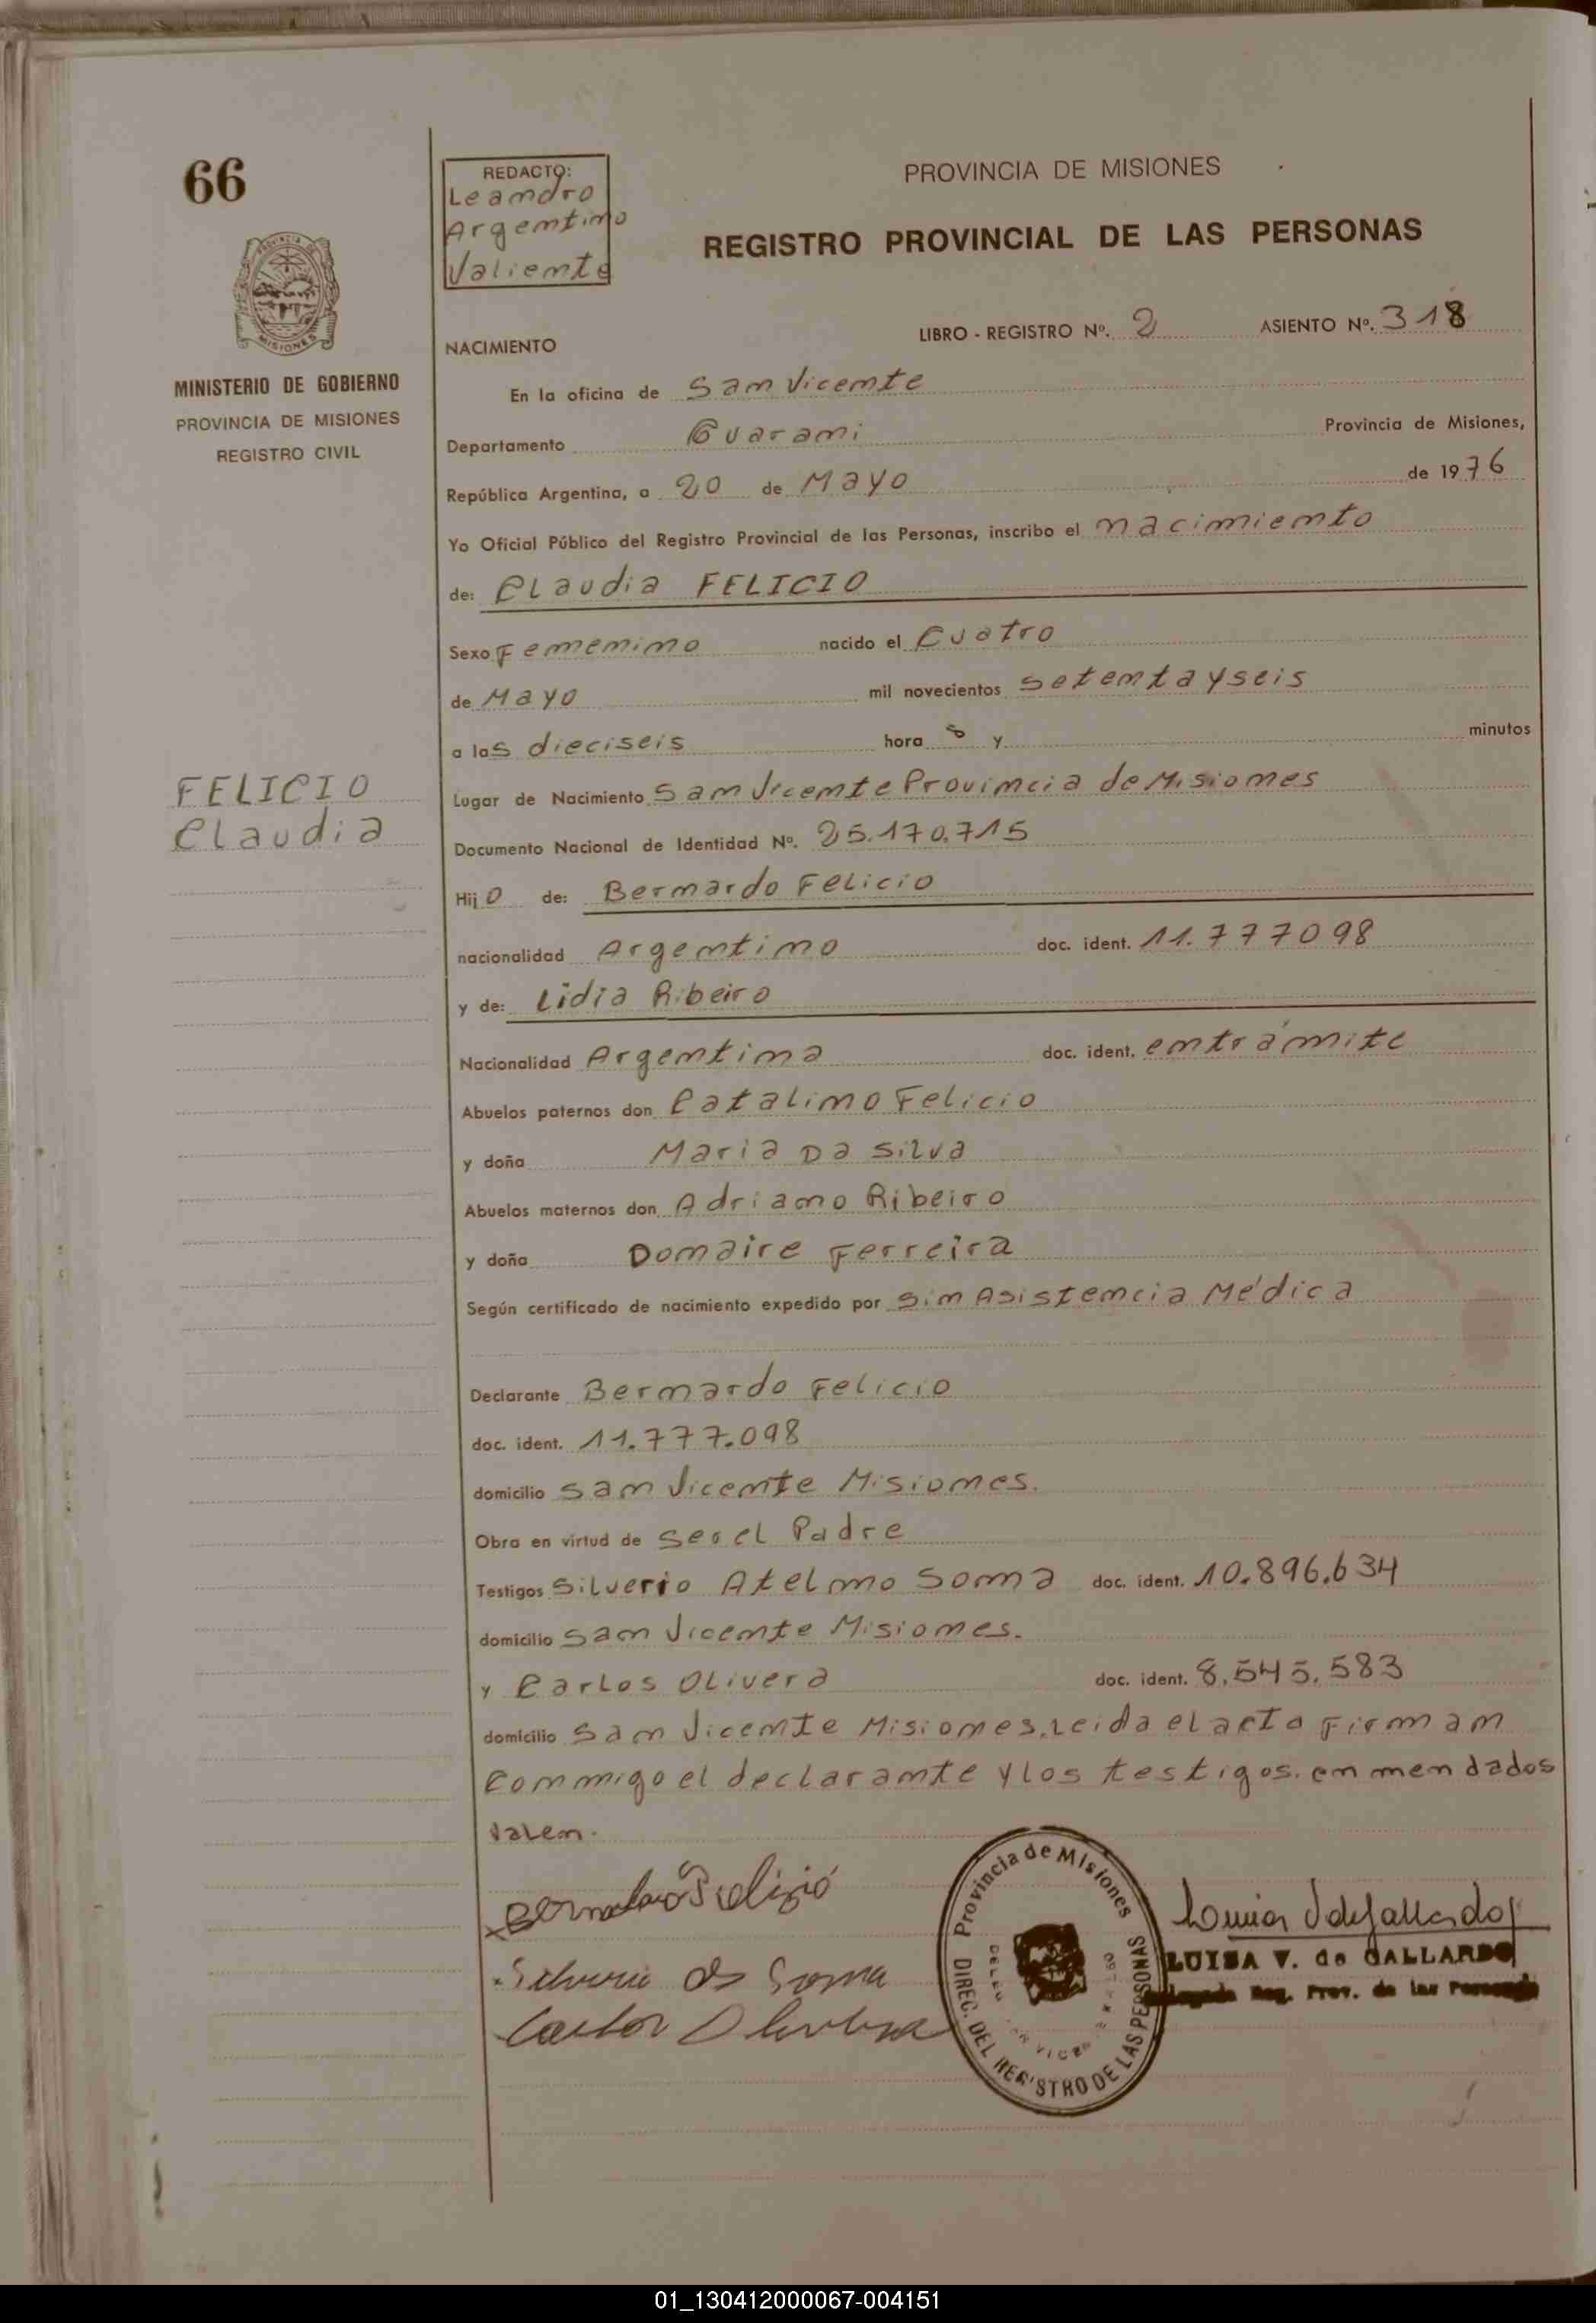 66
REDACTO:
Leandro
Argentino
Valiente
PROVINCIA DE MISIONES
REGISTRO PROVINCIAL DE LAS PERSONAS
PROVINCIA DE
MISIONES
MINISTERIO DE GOBIERNO
PROVINCIA DE MISIONES
REGISTRO CIVIL
LIBRO - REGISTRO Nº. 2 ASIENTO Nº. 318
NACIMIENTO
En la oficina de San Vicente
Departamento Guarani Provincia de Misiones,
República Argentina, a 20 de Mayo de 1976
Yo Oficial Público del Registro Provincial de las Personas, inscribo el nacimiento
de: Claudia FELICIO
Sexo Femenino nacido el Cuatro
de Mayo mil novecientos setentayseis
a las dieciseis hora s y minutos
FELICIO
Claudia
Lugar de Nacimiento San Vicente Provincia de Misiones
Documento Nacional de Identidad Nº. 25.170.715
Hijo de: Bernardo Felicio
nacionalidad Argentino doc. ident. 11.777098
y de: Lidia Ribeiro
Nacionalidad Argentina doc. ident. entrámite
Abuelos paternos don Catalino Felicio
y doña Maria Da Silva
Abuelos maternos don Adriano Ribeiro
y doña Donaire Ferreira
Según certificado de nacimiento expedido por Sin Asistencia Médica
Declarante Bernardo Felicio
doc. ident. 11.777.098
domicilio San Vicente Misiones.
Obra en virtud de ser el Padre
Testigos Silverio Atelmo Sonna doc. ident. 10.896.634
domicilio San Vicente Misiones.
y Carlos Olivera doc. ident. 8.545.583
domicilio San Vicente Misiones. Leida el acta Firman
conmigo el declarante y los testigos. enmendados
valen.
Provincia de Misiones
DIREC. DEL REGISTRO DE LAS PERSONAS
LUISA V. de GALLARDO
Delegada Reg. Prov. de las Personas
Carlos Olivera
01_130412000067-004151